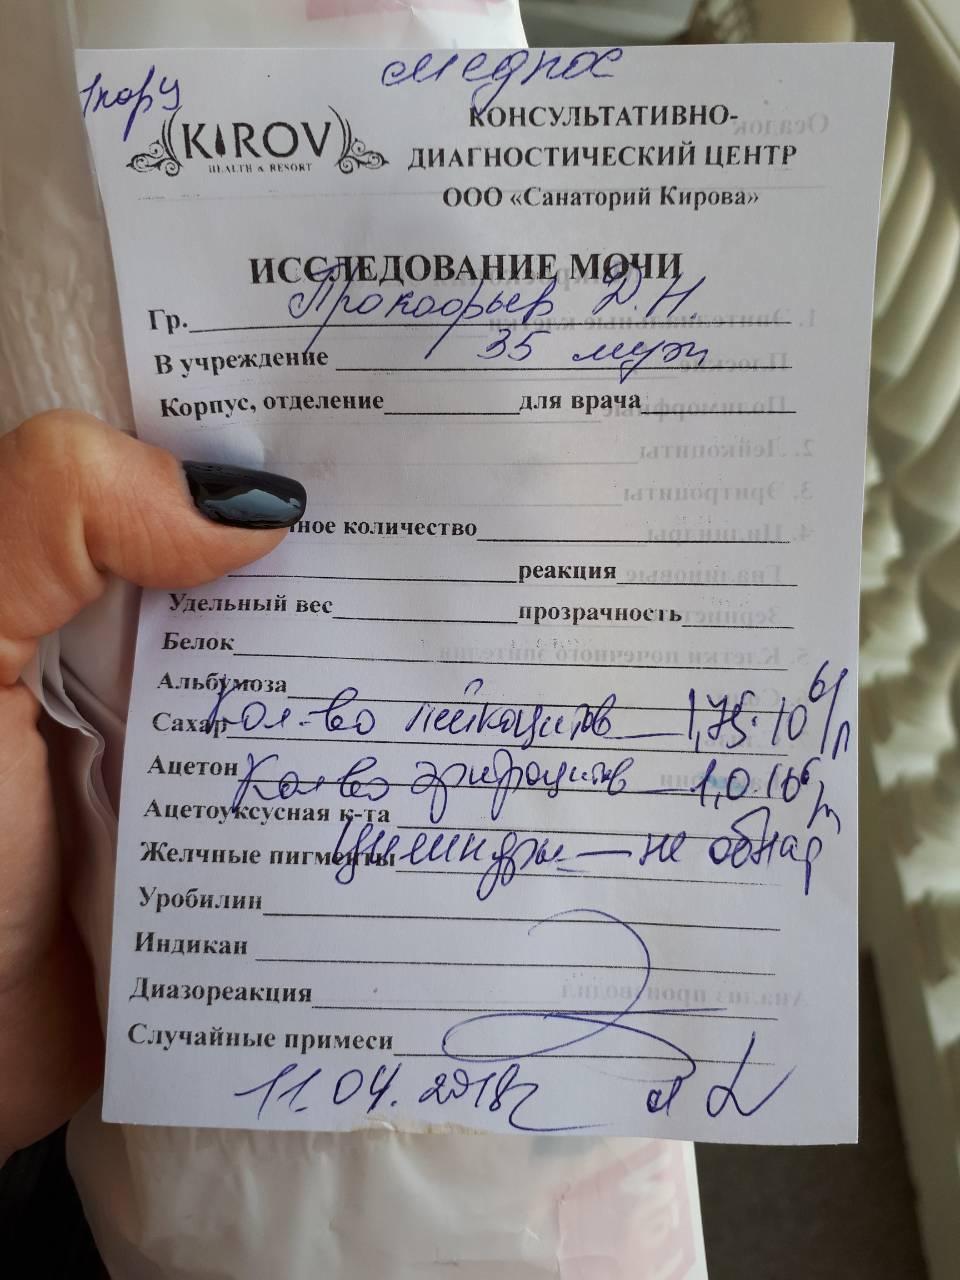 KIROV
HEALTH & RESORT
КОНСУЛЬТАТИВНО-
ДИАГНОСТИЧЕСКИЙ ЦЕНТР
ООО «Санаторий Кирова»
ИССЛЕДОВАНИЕ МОЧИ
Гр. Прокофьев Д.Н.
В учреждение 35 муж
Корпус, отделение для врача
количество
реакция
Удельный вес прозрачность
Белок
Альбумоза
Сахар Кол-во лейкоцитов — 1,75·10⁶/л
Ацетон Кол-во эритроцитов — 1,0·10⁶/л
Ацетоуксусная к-та
Желчные пигменты Цилиндры — не обнар
Уробилин
Индикан
Диазореакция
Случайные примеси
11.04.2018г